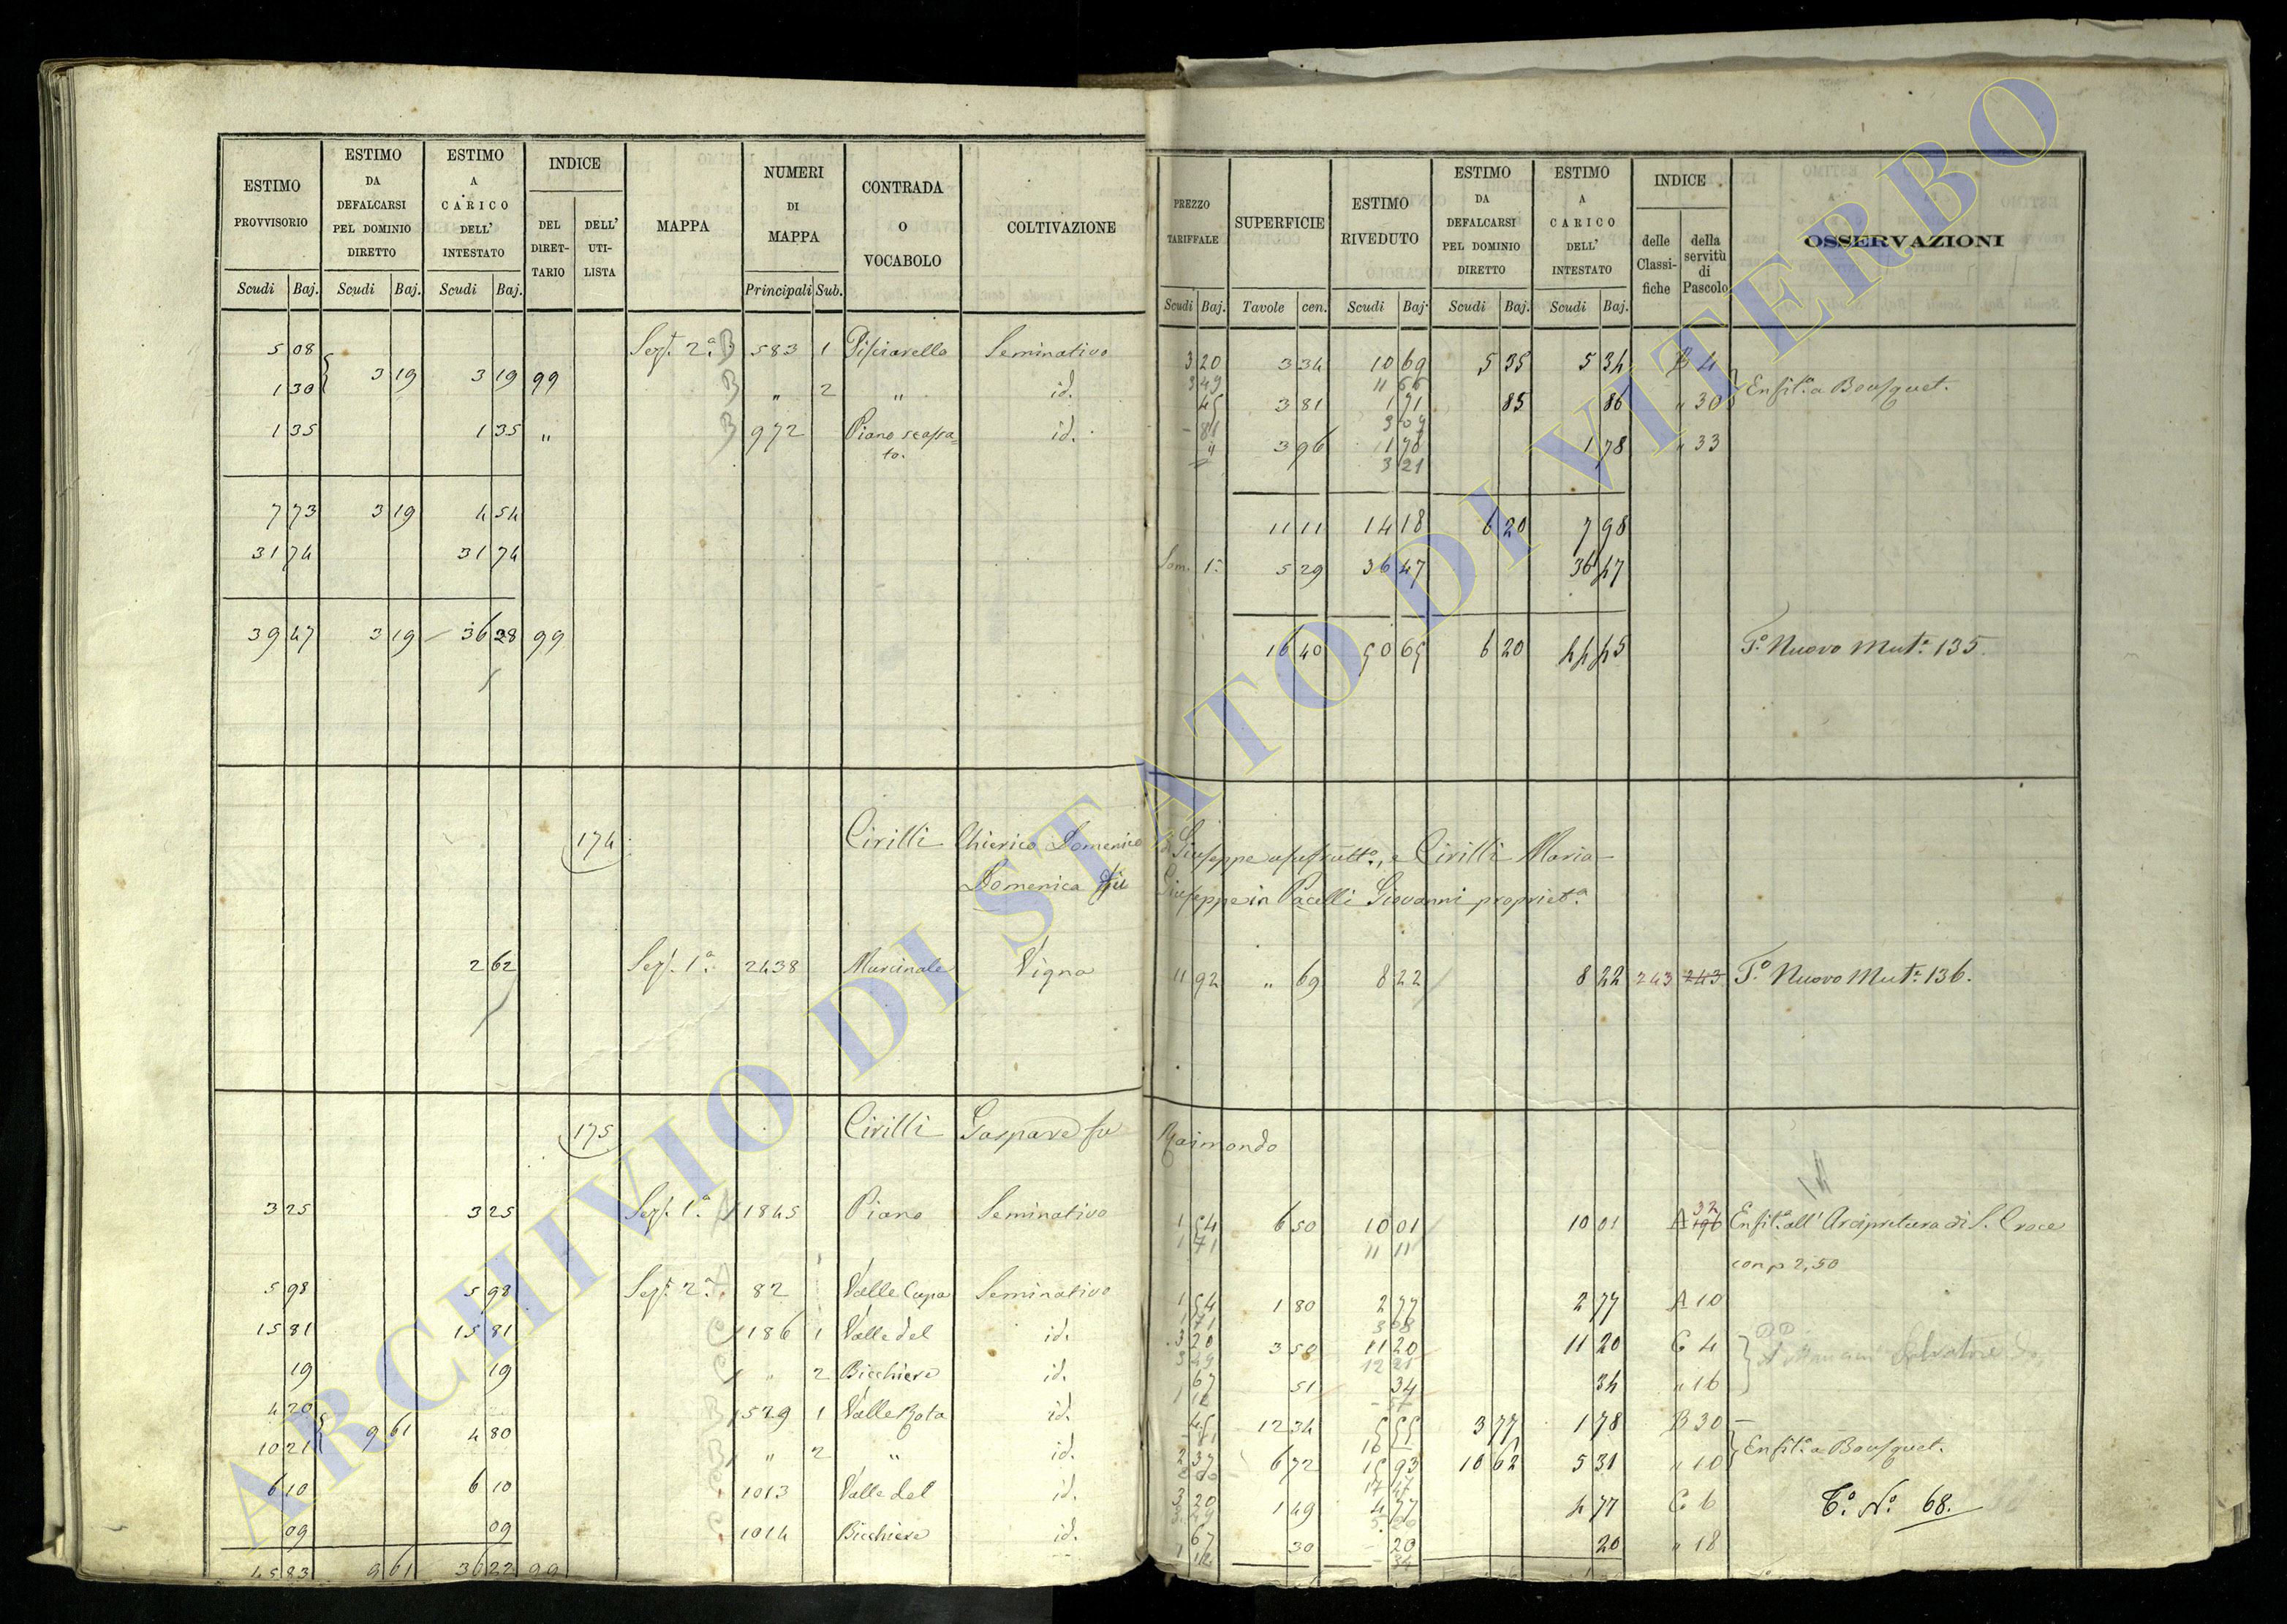 ESTIMO PROVVISORIO | ESTIMO DA DEFALCARSI PEL DOMINIO DIRETTO | ESTIMO A CARICO DELL' INTESTATO | INDICE | MAPPA | NUMERI DI MAPPA | CONTRADA O VOCABOLO | COLTIVAZIONE | PREZZO TARIFFALE | SUPERFICIE | ESTIMO RIVEDUTO | ESTIMO DA DEFALCARSI PEL DOMINIO DIRETTO | ESTIMO A CARICO DELL' INTESTATO | INDICE | OSSERVAZIONI
DEL DIRET-TARIO | DELL' UTI-LISTA | delle Classi-fiche | della servitù di Pascolo
Scudi | Baj. | Scudi | Baj. | Scudi | Baj. | Principali | Sub. | Scudi | Baj. | Tavole | cen. | Scudi | Baj. | Scudi | Baj. | Scudi | Baj.
5 08 | Sez. 2ª B | 583 | 1 | Pisciarello | Seminativo | 3 20 | 3 34 | 10 69 | 5 35 | 5 34 | B 4
3 19 | 3 19 | 99 | 3 49 | 11 66 | Enfit. a Bousquet.
1 30 | B | " | 2 | " | id. | 45 | 3 81 | 1 71 | 85 | 86 | " 30
1 35 | 1 35 | " | B | 972 | Piano scassa=to. | id. | 3 96 | 1 78 | 1 78 | " 33
3 21
7 73 | 3 19 | 4 54 | 11 11 | 14 18 | 6 20 | 7 98
31 74 | 31 74 | 5 29 | 36 47 | 36 47
39 47 | 3 19 | 36 28 | 99 | 16 40 | 50 65 | 6 20 | 44 45 | T.º Nuovo Mut.ª 135.
174 | Cirilli Chierico Domenico di Giuseppe usufrutt.º, e Cirilli Maria
Domenica di Giuseppe in Pacelli Giovanni propriet.ª
2 62 | Sez. 1ª | 2438 | Marcinale | Vigna | 11 92 | " 69 | 8 22 | 8 22 | 243 | 243 | T.º Nuovo Mut.ª 136.
175 | Cirilli Gaspare fu Raimondo
3 25 | 3 25 | Sez. 1ª | 1845 | Piano | Seminativo | 1 54 | 6 50 | 10 01 | 10 01 | A 196 | 32 | Enfit. all' Arcipretura di S. Croce
1 71 | 11 11 | con p 2,50
5 98 | 5 98 | Sez. 2ª | 82 | Valle Cupa | Seminativo | 1 54 | 1 80 | 2 77 | 2 77 | A 10
1 71 | 3 08
15 81 | 15 81 | C | 186 | 1 | Valle del | id. | 3 20 | 3 50 | 11 20 | 11 20 | C 4
3 49 | 12 21
19 | 19 | C | " | 2 | Bicchiere | id. | 67 | 51 | 34 | 34 | " 16
1 12 | 57
4 20 | B | 529 | 1 | Valle Rota | id. | 45 | 12 34 | 5 55 | 3 77 | 1 78 | B 30
9 61 | 4 80 | Enfit. a Bousquet.
10 21 | B | " | 2 | " | id. | 2 37 | 6 72 | 15 93 | 10 62 | 5 31 | " 10
17 47
6 10 | 6 10 | C | 1013 | Valle del | id. | 3 20 | 1 49 | 4 77 | 4 77 | C 6 | T.º N.º 68.
3 49 | 5 20
09 | 09 | C | 1014 | Bicchiere | id. | 67 | 30 | 20 | 20 | " 18
1 12 | 34
45 83 | 9 61 | 36 22 | 99
ARCHIVIO DI STATO DI VITERBO